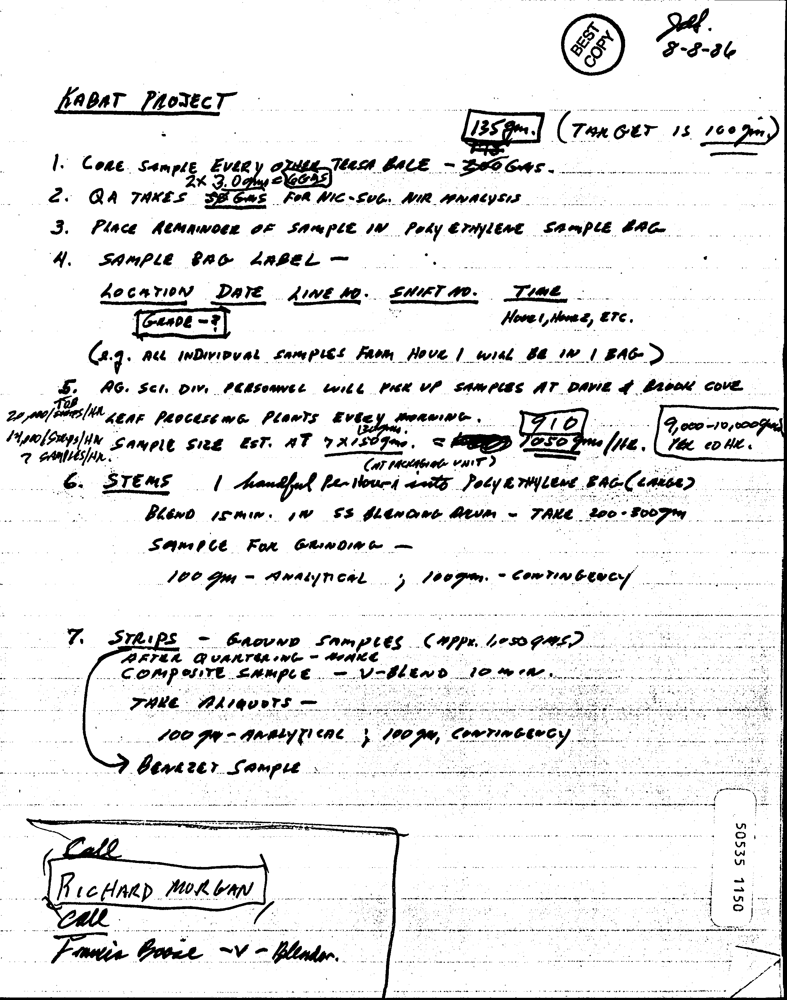 BEST COPY
8-8-86
KABAT PROJECT
135 gm. (TARGET IS 100 gm.)
1. CORE SAMPLE EVERY OTHER TERSA BALE - 300 GMS.
2 x 3.0 gms = 6 GMS
2. QA TAKES 50 GMS FOR NIC-SUG. NIR ANALYSIS
3. PLACE REMAINDER OF SAMPLE IN POLYETHYLENE SAMPLE BAG
4. SAMPLE BAG LABEL -
LOCATION DATE LINE NO. SHIFT NO. TIME
GRADE - ? HOUR 1, HOUR 2, ETC.
(e.g. ALL INDIVIDUAL SAMPLES FROM HOUR 1 WILL BE IN 1 BAG)
5. AG. SCI. DIV. PERSONNEL WILL PICK UP SAMPLES AT DAVIE & BROOK COVE
LEAF PROCESSING PLANTS EVERY MORNING. 910 9,000-10,000 gms
7 SAMPLES/HR. SAMPLE SIZE EST. AT 7 x 150 gms. = 1050 gms/HR. PER 10 HR.
(AT PACKAGING UNIT)
6. STEMS 1 handful per hour into POLYETHYLENE BAG (LARGE)
BLEND 15 MIN. IN SS BLENDING DRUM - TAKE 200-300 gm
SAMPLE FOR GRINDING -
100 gm - ANALYTICAL ; 100 gm. - CONTINGENCY
7. STRIPS - GROUND SAMPLES (APPX. 1,050 GMS)
AFTER QUARTERING - MAKE
COMPOSITE SAMPLE - V-BLEND 10 MIN.
TAKE ALIQUOTS -
100 gm - ANALYTICAL ; 100 gm, CONTINGENCY
BENEZET SAMPLE
Call
RICHARD MORGAN
Call
Francis - V - Blender.
50535 1150